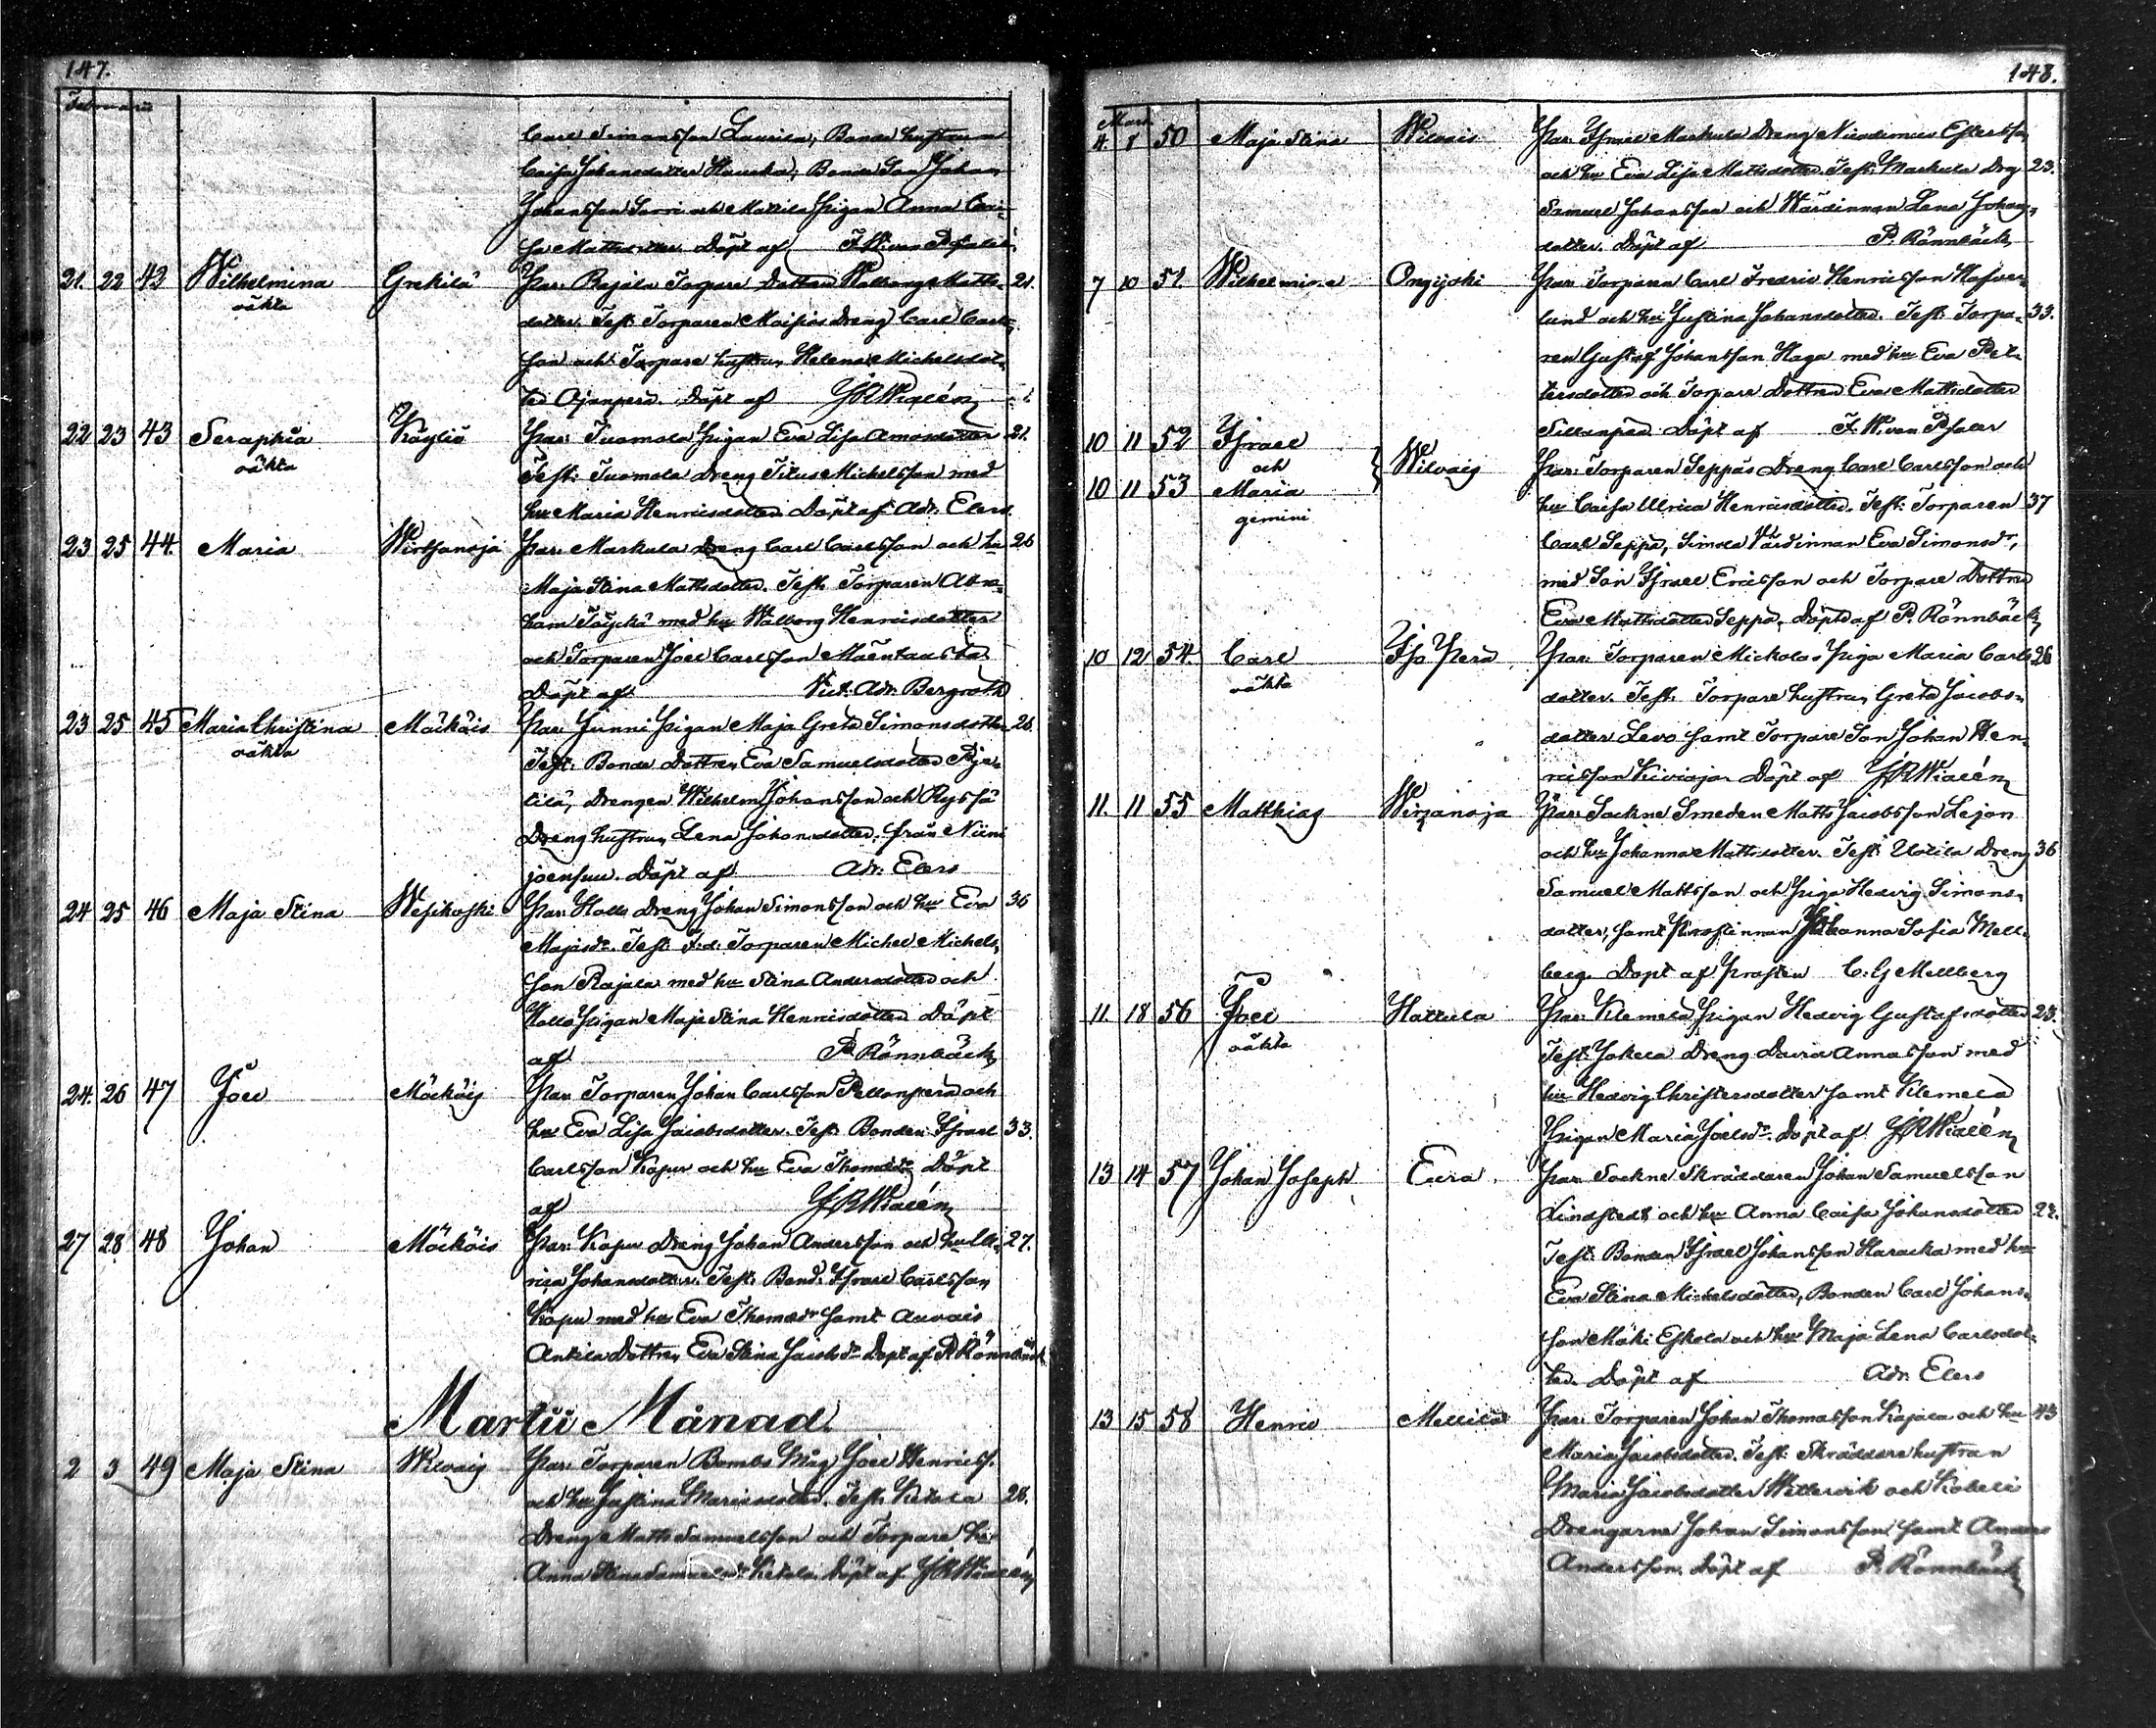 147.
Februarii
Carl Simonsson Laurila, Bonde hustrun
Caisa Johansdotter Hauska, Bonde Son Johan
Johansson Sorri och Mattila Pigan Anna Cai-
sa Mattsdotter. Döpt af F. W. von Pfaler
21. 22 42 Wilhelmina Grekilä Par. Rajala Torpare Dottren Walborg Matts- 21.
oäkta dotter. Test. Torparen Moisios Dreng Carl Carls-
son och Torpare hustrun Helena Michelsdot-
ter Ojanperä. Döpt af J R Widlén
22 23 43 Seraphia Köyliö Par. Tuomola Pigan Eva Lisa Amosdotter 21.
oäkta Test. Tuomola Dreng Titus Michelsson med
hu Maria Henricsdotter. Döpt af Adr. Elers.
23 25 44. Maria Wirtsanoja Par. Markula Dreng Carl Carlsson och hu 26
Maja Stina Mattsdotter. Test. Torparen Abra-
ham Töyckä med hu Walborg Henricsdotter
och Torparen Joel Carlsson Mäentaasta.
Döpt af Vict. Adr. Bergroth
23 25 45 Maria Christina Mäckäis Par. Junni Pigan Maja Greta Simonsdotter 26.
oäkta Test. Bonde Dottren Eva Samuelsdotter
tilä, Drengen Wilhelm Johansson och Ryssä
Dreng hustrun Lena Johansdotter, från Niini
joensuu. Döpt af Adr. Elers
24 25 46 Maja Stina Wesikoski Par. Hollo Dreng Johan Simonsson och hu Eva 36
Majasdr. Test. F.d. Torparen Michel Michels-
son Rajala med hu Stina Andersdotter och
Hollo Pigan Maja Stina Henricsdotter Döpt
af P. Rönnbäck
24. 26 47 Joel Mäckäis Par. Torparen Johan Carlsson Pellonperä och
hu Eva Lisa Jacobsdotter. Test. Bonden Israel 33.
Carlsson Kapu och hu Eva Thomasdr Döpt
af J R Widlén
27 28 48 Johan Mäckäis Par. Kapu Dreng Johan Andersson och hu Ul- 27.
rica Johansdotter. Test. Bond. Israel Carlsson
Kapu med hu Eva Thomasdr samt Auvais
Antila Dottren Eva Stina Jacobsdr Döpt af P. Rönnbäck
Martii Månad.
2 3 49 Maja Stina Wilvais Par. Torparen Bombs Måg Joel Henricss.
och hu Justina Mariasdotter. Test. Ketola 26.
Dreng Matts Samuelsson och Torpare hu
Anna Stina Ketola. Döpt af J R Widlén
148.
Mart.
4. 8 50 Maja Stina Wilvais Par. Israel Markula Dreng Nicodemus
och hu Eva Lisa Mattsdotter. Test. Markula Drg 23.
Samuel Johansson och Wärdinnan Lena Johans-
dotter. Döpt af P. Rönnbäck
7 10 51. Wilhelmina Ongijoki Par. Torparen Carl Fredric Henricsson
lund och hu Justina Johansdotter. Test. Torpa- 33.
ren Gustaf Johansson Haga med hu Eva Pet-
tersdotter och Torpare Dottren Eva Mattsdotter
Sillanpää. Döpt af F. W. von Pfaler
10 11 52 Israel
och
10 11 53 Maria
gemini
Wilvais Par. Torparen Seppäs Dreng Carl Carlsson och
hu Caisa Ulrica Henricsdotter. Test. Torparen 37
Carl Seppä, Simola Värdinnan Eva Simonsdr,
med Son Israel Ericsson och Torpare Dottren
Eva Mattsdotter Seppä. Döpta af P. Rönnbäck
10 12 54. Carl Iso Perä Par. Torparen Mickolas Piga Maria Carls 26
oäkta dotter. Test. Torpare hustrun Greta Jacobs-
dotter Levo samt Torpare Son Johan Hen-
ricsson Kivioja. Döpt af J R Widlén
11. 11 55 Matthias Wirzanoja Par. Sockne Smeden Matts Jacobsson Lejon
och hu Johanna Mattsdotter. Test. Uotila Dreng 36
Samuel Mattsson och Piga Hedvig Simons-
dotter, samt Prostinnan Johanna Sofia Mell-
berg. Döpt af Prosten C. G Mellberg
11. 18 56 Joel Hattula Par. Klemelä Pigan Hedvig Gustafsdotter 23.
oäkta Test. Jokela Dreng David Annasson med
hu Hedvig Christersdotter samt Klemelä
Pigan Maria Joelsdr. Döpt af J R Widlén
13 14 57 Johan Joseph Eura Par. Sockne Skräddaren Johan Samuelsson
Lindstedt och hu Anna Caisa Johansdotter 22.
Test. Bonden Israel Johansson Haracka med hu
Eva Stina Michelsdotter, Bonden Carl Johans-
son Mäki Eskola och hu Maja Lena Carlsdot-
ter. Döpt af Adr. Elers
13 15 58 Henric Mellilä Par. Torparen Johan Thomasson Kajala och hu 43
Maria Jacobsdotter. Test. Skräddare hustrun
Maria Jacobsdotter Wetterwik och
Drengarne Johan Simonsson samt Anders
Andersson. Döpt af P. Rönnbäck